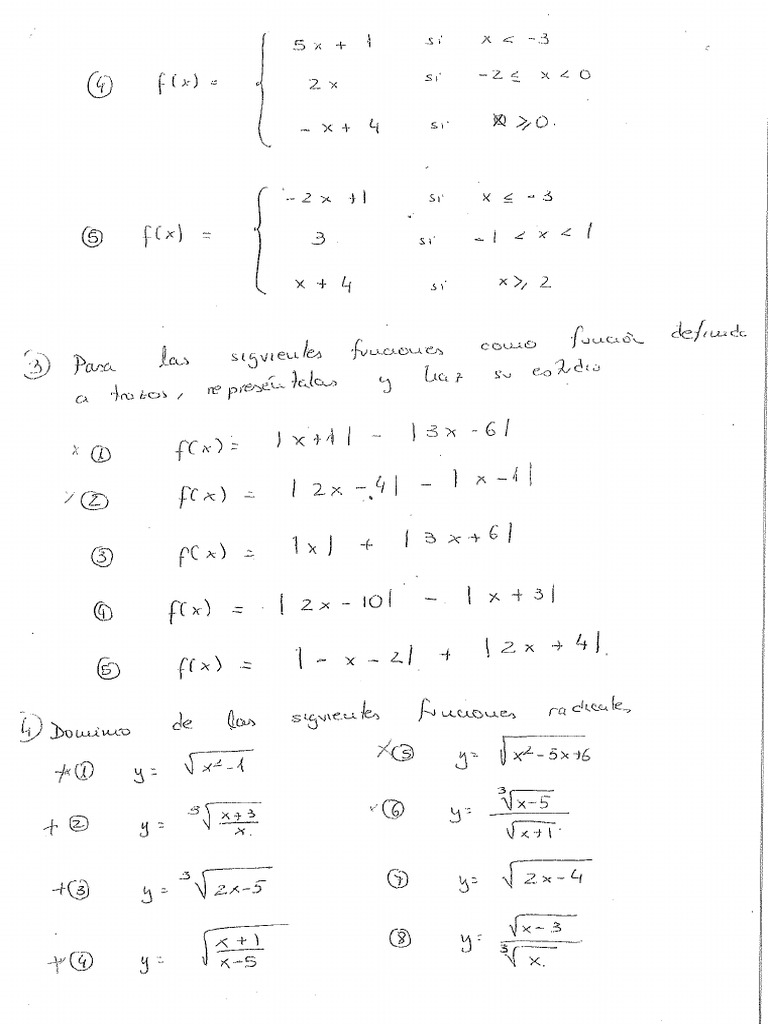 ④ f(x) = { 5x + 1 si x < -3
2x si -2 ≤ x < 0
-x + 4 si x ≥ 0.
⑤ f(x) = { -2x + 1 si x ≤ -3
3 si -1 < x < 1
x + 4 si x ≥ 2
③ Pasa las siguientes funciones como función definida
a trozos, represéntalas y haz su estudio
x ① f(x) = |x+1| - |3x-6|
② f(x) = |2x-4| - |x-1|
③ f(x) = |x| + |3x+6|
④ f(x) = |2x-10| - |x+3|
⑤ f(x) = |-x-2| + |2x+4|.
④ Dominio de las siguientes funciones radicales
+① y = √(x²-1) x⑤ y = √(x²-5x+6)
+② y = ∛((x+3)/x) ⑥ y = ∛(x-5)/√(x+1)
+③ y = ∛(2x-5) ⑦ y = √(2x-4)
+④ y = √((x+1)/(x-5)) ⑧ y = √(x-3)/∛x